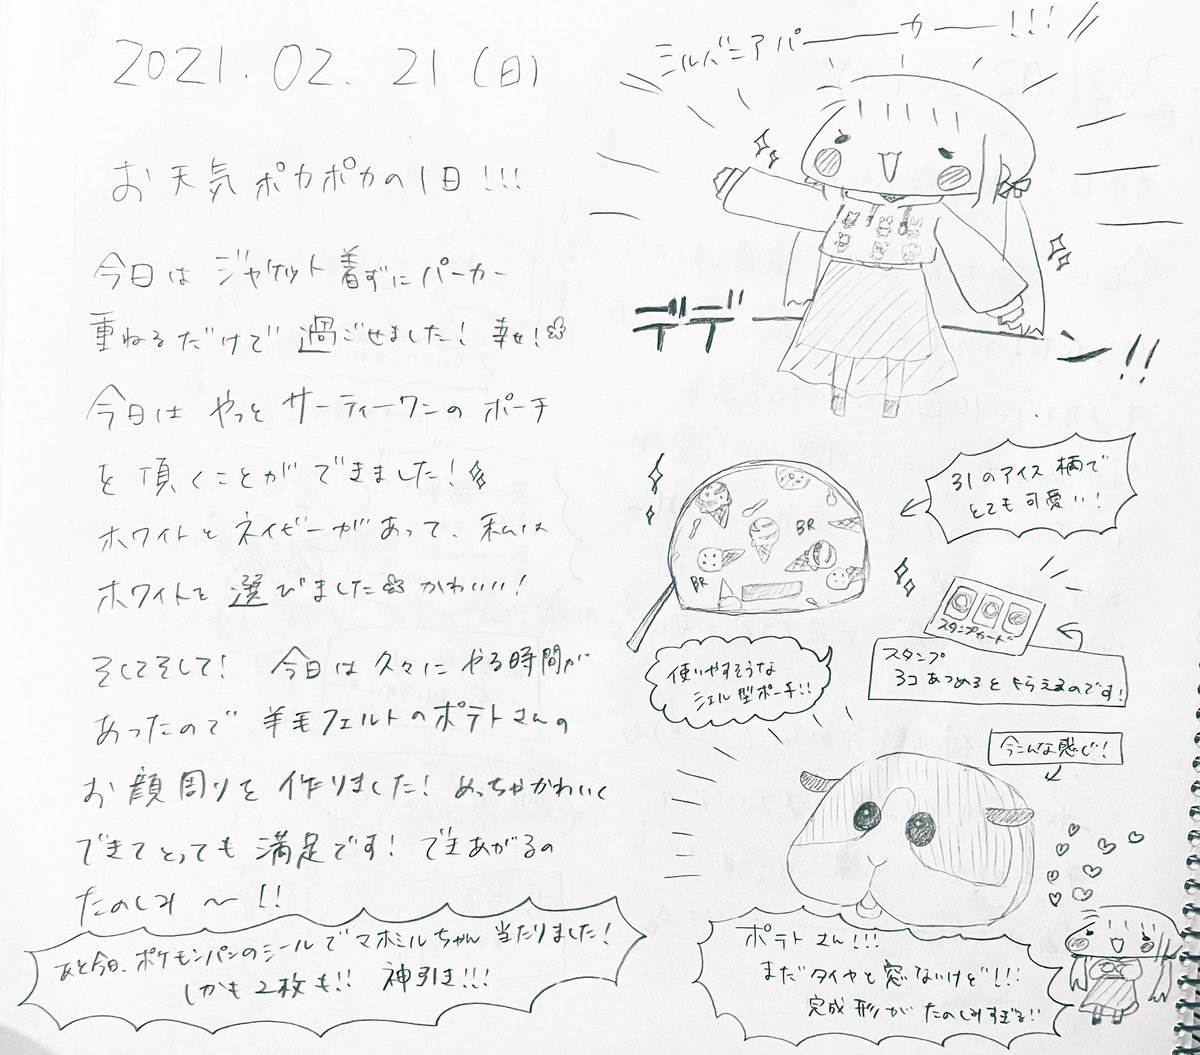 2021.02.21(日)
お天気ポカポカの1日!!!
今日はジャケット着ずにパーカー
重ねるだけで過ごせました!幸せ!
今日はやっとサーティーワンのポーチ
を頂くことができました!
ホワイトとネイビーがあって、私は
ホワイトを選びました かわいい!
そしてそして!今日は久々にやる時間が
あったので羊毛フェルトのポテトさんの
お顔周りを作りました!めっちゃかわいく
できてとっても満足です!できあがるの
たのしみ〜!!
あと今日、ポケモンパンのシールでマホミルちゃん当たりました!
しかも2枚も!!神引き!!!
シルバニアパーカー!!!
デデーン!!
31のアイス柄で
とても可愛い!
BR
BR
スタンプカード
スタンプ
3コあつめるともらえるのです!
使いやすそうな
シェル型ポーチ!!
今こんな感じ!
ポテトさん!!!
まだタイヤと窓ないけど!!!
完成形がたのしみすぎる!!